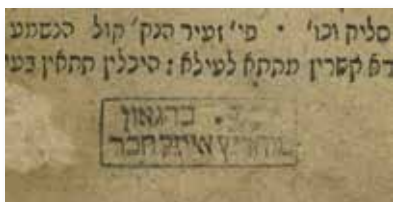 סליק וכו' • פי' זעיר הנק' קול הנשמע
דא קשרין מתתא לעילא : היכלין תתאין בעי
ב. בהגאון
איזק חבר